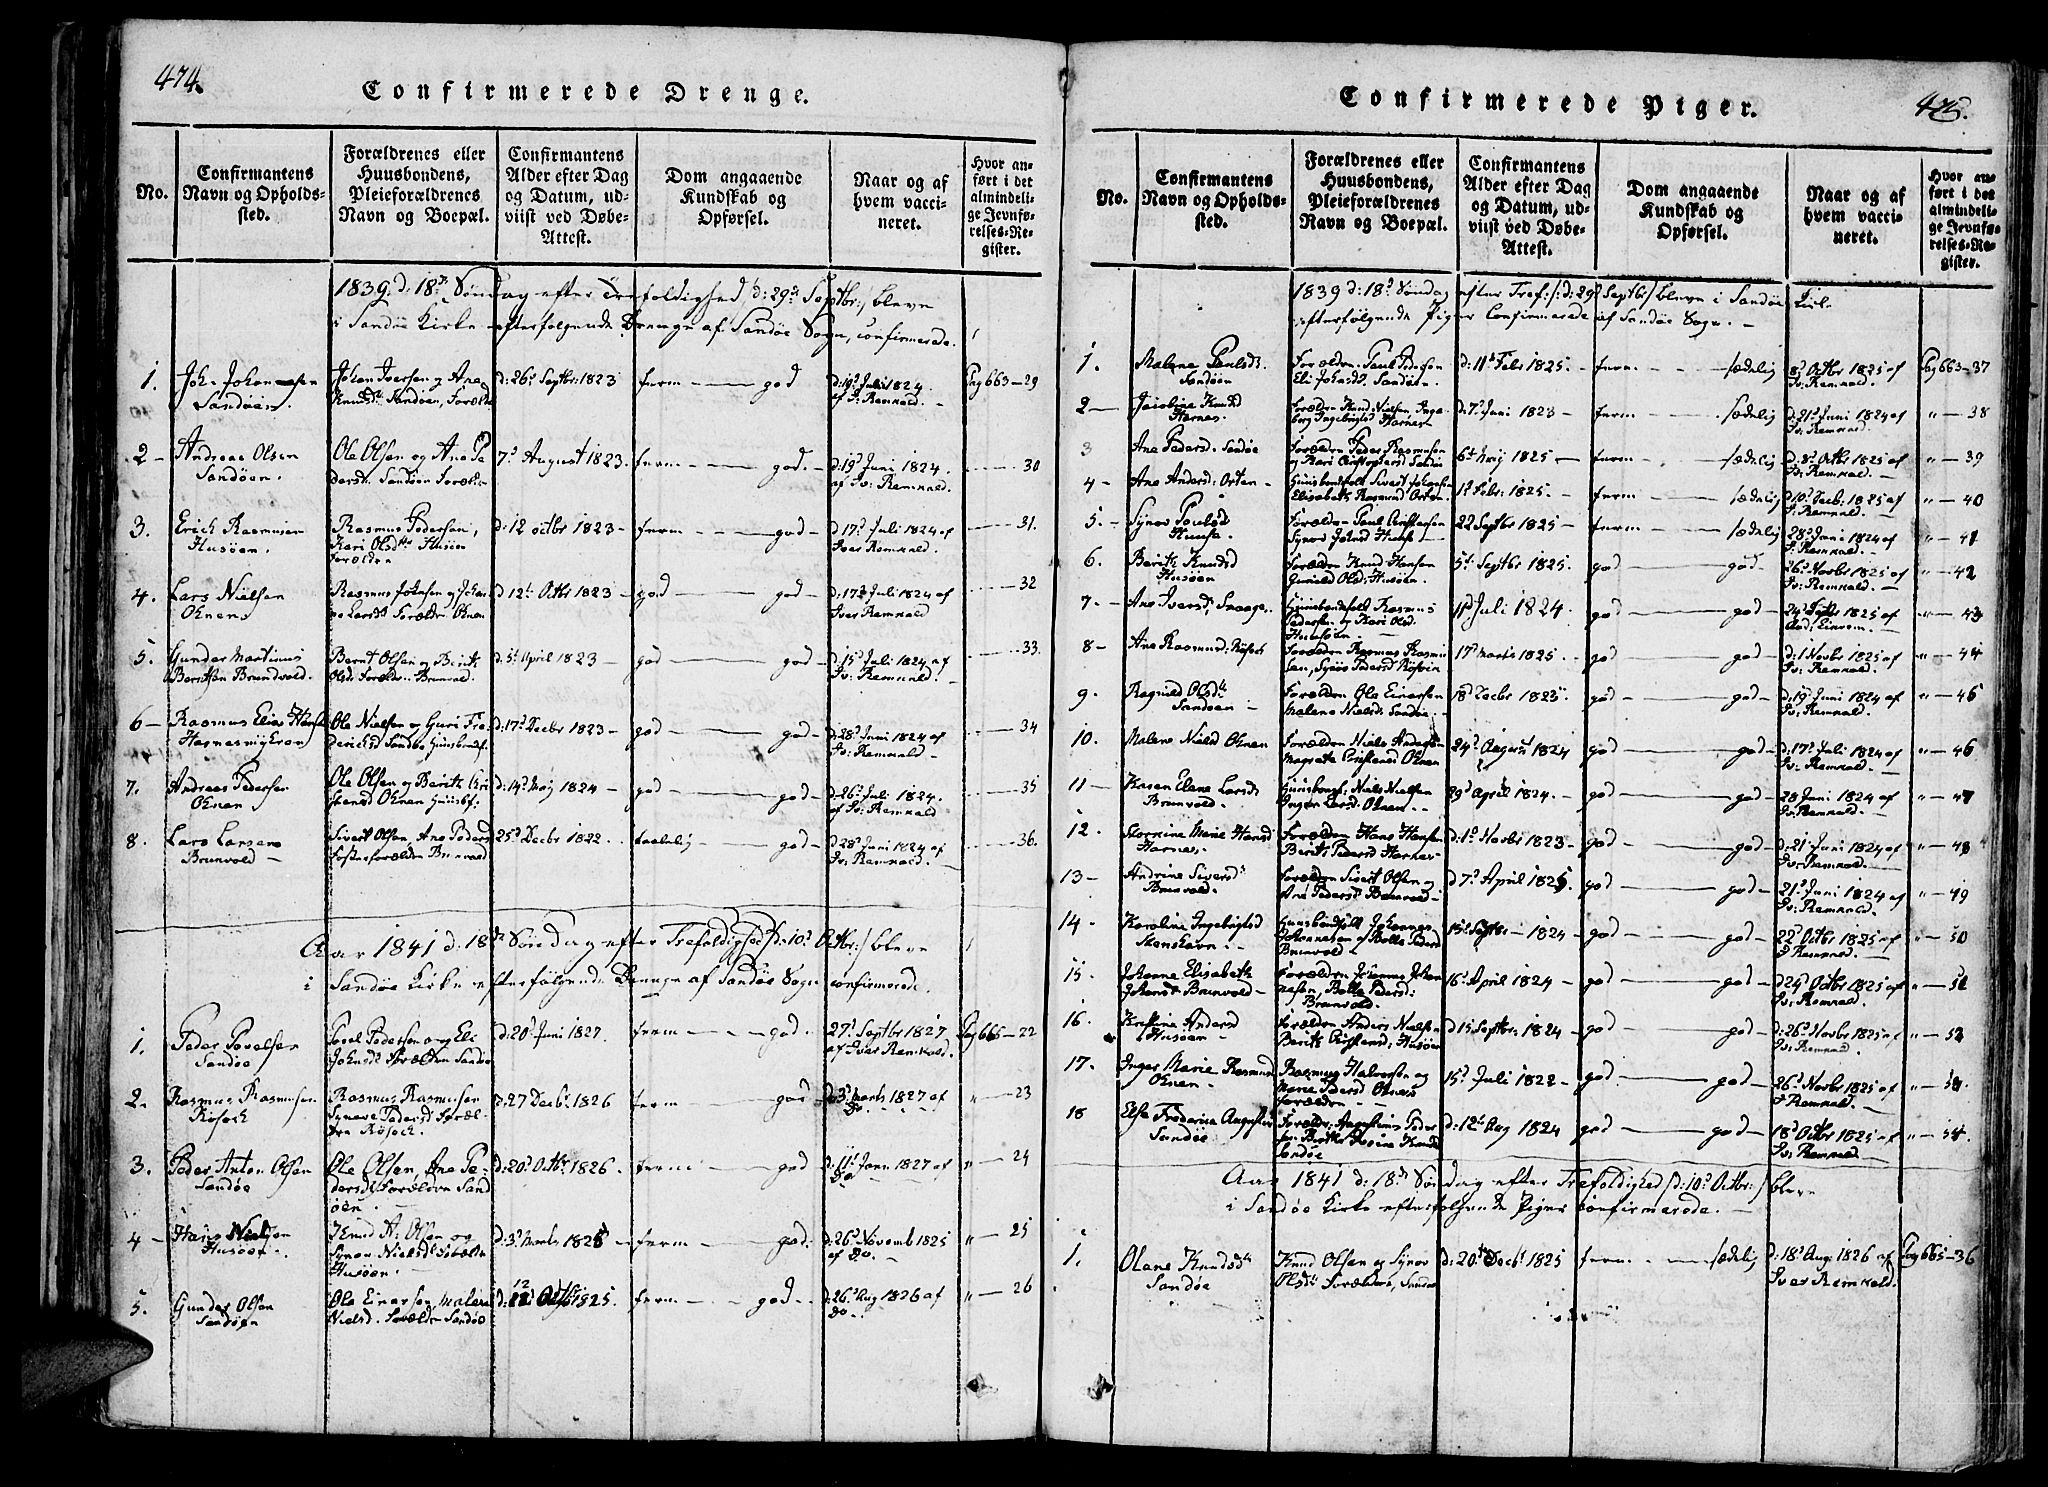 474.
Confirmerede Drenge.
No.
Confirmantens Navn og Opholdssted.
Forældrenes eller Huusbondens, Pleieforældrenes Navn og Boepæl.
Confirmantens Alder efter Dag og Datum, udviist ved Døbe-Attest.
Dom angaaende Kundskab og Opførsel.
Naar og af hvem vaccineret.
Hvor anført i det almindelige Jevnførelses-Register.
1839. d: 18de Søndag efter Trefoldighed /d: 29de Septbr:/ bleve
i Sandøe Kirke efterfølgende Drenge af Sandøe Sogn, confirmerede.
1. Joh. Johannesen Sandøen. Johan Iversen og Ane Knudsd. Sandøen, Forældre d: 26d Septbr: 1823 ferm — god d: 19d Juli 1824. af Iv: Remkald. Pag 663 — 29
2 — Andreas Olsen Sandøen. Ole Olsen og Ane Pedersdr Sandøen Forældre 7d August 1823. ferm — god. d: 19d Juni 1824. af Iv: Remkald. 30
3. Erich Rasmusen Husøen. Rasmus Pedersen, Kari Olsdtr Husøen Forældre d: 12 octbr 1823 — ferm — god d: 17d Juli 1824 af Iver Remkald. 31.
4. Lars Nielsen Oknens Rasmus Johnsen og Johanne Larsd: Forældre Oknen d 12te Octbr 1823 — god — god d: 17d Juli 1824 af Iver Remkald 32
5. Gunder Martinus Berntsen Brunvold. Bernt Olsen og Berit Olsd: Forældre Brunvold. d: 5t April 1823 — god — god d: 15d Juli 1824 af Iv: Remkald. 33.
6 — Rasmus Elias Hansen Harnesmyhren Ole Nielsen og Guri Frederichsd Sandøe Huusbondf. d: 17d Decbr 1823 — god — god d: 28d Juni 1824 af Iv: Remkald 34
7. Andreas Pedersen Oknen. Ole Olsen og Berith Christensd Oknen Huusbf. d: 14d Maj 1824 — god — god d: 26d Juli 1824. af Iv: Remkald 35
8. Lars Larsens Brunvold — Sivert Olsen, Ane Peders Fosterforældre Brunvold 25d Decbr 1822. taalelig — god d: 28d Juni 1824 af Iv: Remkald. 36.
Aar 1841 d. 18de Søndag efter Trefoldighed /d: 10d Octbr:/ bleve
i Sandøe Kirke efterfølgende Drenge af Sandøe Sogn confirmerede.
1. Peder Povelsen Sandøe Povel Pedersen og Eli Johnsd: Forældre Sandøe d: 20d Juni 1827. ferm — god. 27d Septbr 1827 af Iver Remkald. Pag 665 — 22
2. Rasmus Rasmusen Røsoch Rasmus Rasmusen Synøve Pedersd Forældre Røsoch. d: 27 Decbr 1826 ferm — god d: 3d Marts 1827 af Do. 23
3. Peder Anton Olsen Sandøe Ole Olsen, Ane Pedersd: Forældre Sandøen. d: 20d Octbr 1826. ferm — god d: 11t Janr 1827 af Do 24
4 — Hans Nielsen Husøen. Knud A: Olsen og Synøv Nielsd: Forældre Husøen. d: 3d Marts 1825 ferm — god. d: 26d Novemb 1825 af Do. 25
5. Gunder Olsen Sandøen Ole Einersen, Malene Nielsd. Forældre Sandøe 12 Octbr 1825. ferm — god d: 26d Aug 1826 af Do. 26
475.
Confirmerede Piger.
No.
Confirmantens Navn og Opholdssted.
Forældrenes eller Huusbondens, Pleieforældrenes Navn og Boepæl.
Confirmantens Alder efter Dag og Datum, udviist ved Døbe-Attest.
Dom angaaende Kundskab og Opførsel.
Naar og af hvem vaccineret.
Hvor anført i det almindelige Jevnførelses-Register.
1839 d: 18d Søndag efter Tref:/: d: 29d Septbr/ bleve i Sandøe Kirke
efterfølgende Piger Confirmerede af Sandøe Sogn. —
1. Malene Poulsd: Sandøen Forældre Paul Pedersen Eli Johnsd: Sandøen. d: 11t Febr 1825. ferm — sædelig 8d Octbr 1825 af Iv: Remkald. Pag 663 — 37
2 — Jacobine Knudsd Harnes. Forældre Knud Nielsen, Ingeborg Ingebrigtsd Harnes d: 7d Juni 1823 — ferm — sædelig d: 21d Juni 1824 af Iv: Remkald. 38
3 Ane Pedersd: Sandøe Forældre Peder Rasmusen og Kari Christophersd Sandøe 6t Maj 1825 — ferm — sædelig d: 8d Octbr 1825 af Iv: Remkald. 39
4 — Ane Andersd: Orten — Huusbondfolk Sivert Johnsen Elisabeth Rasmusd Orten. 1d Febr: 1825. — ferm — sædelig d 10d Decbr: 1825 af I: Remkald. 40
5. — Synøv Poulsd Forældre Paul Christensen Synøv Johnsd 22 Septbr 1825 — ferm — sædelig 28d Juni 1824 af I: Remkald. — 41
6. Berith Knudsd Husøen Forældre Knud Hansen Gunild Olsd: Husøen. 5t: Septbr 1825. god — god. 26d Novbr 1825 af Iv: Remkald. — 42
7. — Ane Iversd: Huusbondfolk Rasmus Pedersen og Kari Olsd. Juli 1824. god — god 24d Octbr 1825 af 43
8 — Ane Rasmusd: Røsoch Forældre Rasmus Rasmusen, Synøv Pedersd Røsoch 17d Marts 1825. god — god d: 1 Novbr 1825 af Iv: Remkald. 44
9. Ragnild Olsdtr Sandøen — Forældre Ole Einersen Malene Nielsd: Sandøe. 18d Decbr 1823. god — god d: 19d Juni 1824 af Iv. Remkald. 45
10. Malene Nielsd Oknen Forældre Niels Andersen Magrete Christensd Oknen 24d August 1824 god — god d: 17d Juli 1824 af Iv: Remkald. 46
11 — Karen Elene Larsd: Brunvold. Huusbondf: Niels Nielsen Inger Larsd: Oknen. 29d April 1824. god — god 28 Juni 1824 af Iv: Remkald. 47
12. Marie Hansd Harnes. Forældre Hans Hansen Berit Pedersd Harnes d: 1d Novbr 1823 — god — god d: 21d Juni 1824 af Iv: Remkald. 48
13 — Andrine Siversd: Brunvold. Forældre Sivert Olsen og Ane Pedersd Brunvold d 7d April 1825. god — god 21d Juni 1824 af Iv: Remkald. 49
14 — Karoline Ingebrigtsd Stenshavn — Huusbondfolk Johannes Johannesen og Bolle Pedersd Brunvold — 15d Septbr — 1824 — god — god 22d Octbr 1825 af I: Remkald. 50
15. Johanne Elisabeth Johansd: Brunvold — Forældre Johannes Johannesen, Bolle Pedersd: Brunvold. 16d April 1824 — god — god d 24d Octbr 1825 af Iv: Remkald. 51
16. Kristine Andersd Husøen Forældre Anders Nielsen Berit Christensd: Husøen d 15 Septbr: 1824 god — god d: 26d Novbr 1825 af Iv: Remkald. 52
17. Inger Marie Rasmusd Oknen — Rasmus Halversen og Marie Pedersd Oknen Forældre — 15d Juli 1822 — god — god 26d Novbr 1825 af I: Remkald.
18 Else Frederica Augustin Sandøe Forældre: Augustinus Pedersen Knudsd Sandøe d: 12te Aug 1824 god — god — 18d Octbr 1825 af Iv: Remkald. — 54.
Aar 1841 d: 18de Søndag efter Trefoldighed /d: 10d Octbr:/ bleve
i Sandøe Kirke efterfølgende Piger confirmerede. —
1. Olane Knudsdtr Sandøe Knud Olsen og Synøv Olsdtr Forældre, Sandøe d: 20de Decbr 1825 ferm — sædelig d: 18d Aug 1826 af Iver Remkald. Pag 665 — 36